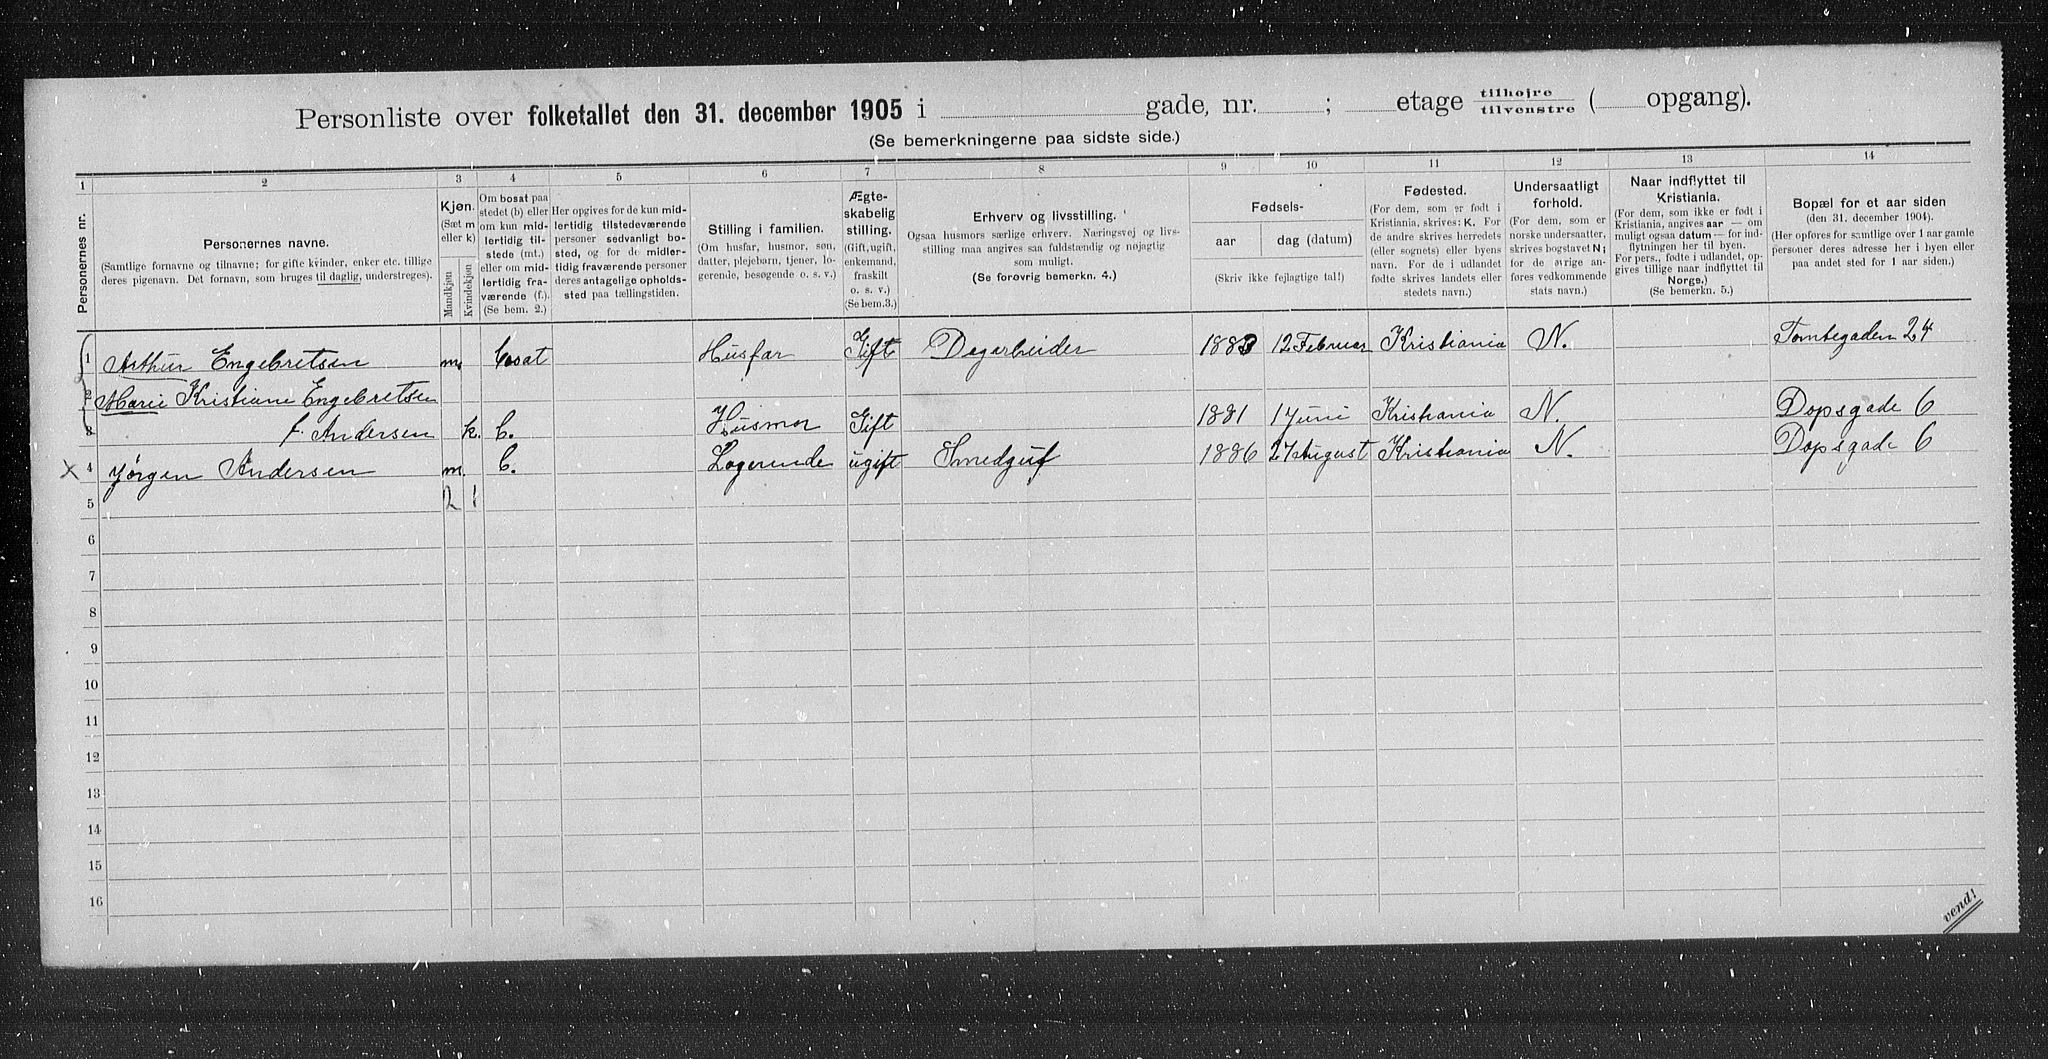 Personliste over folketallet den 31. december 1905 i gade, nr. ; etage tilhøjre / tilvenstre ( opgang).
(Se bemerkningerne paa sidste side.)
1 2 3 4 5 6 7 8 9 10 11 12 13 14
Personernes nr.
Personernes navne.
(Samtlige fornavne og tilnavne; for gifte kvinder, enker etc. tillige
deres pigenavn. Det fornavn, som bruges til daglig, understreges).
Kjøn.
(Sæt m
eller k)
Mandkjøn
Kvindekjøn
Om bosat paa
stedet (b) eller
om kun mid-
lertidig til-
stede (mt.)
eller om mid-
lertidig fra-
værende (f.)
(Se bem. 2.)
Her opgives for de kun mid-
lertidig tilstedeværende
personer sedvanlig bo-
sted, og for de midler-
tidig fraværende personer
deres antagelige opholds-
sted paa tællingstiden.
Stilling i familien.
(Om husfar, husmor, søn,
datter, plejebarn, tjener, lo-
gerende, besøgende o. s. v.)
Ægte-
skabelig
stilling.
(Gift, ugift,
enkemand,
fraskilt
o. s. v.)
(Se bem. 3.)
Erhverv og livsstilling.
Ogsaa husmors særlige erhverv. Næringsvej og livs-
stilling maa angives saa fuldstændig og nøjagtig
som muligt.
(Se forøvrig bemerkn. 4.)
Fødsels-
aar dag (datum)
(Skriv ikke fejlagtige tal!)
Fødested.
(For dem, som er født i
Kristiania, skrives: K. For
de andre skrives herredets
(eller sognets) eller byens
navn. For de i udlandet
fødte skrives landets eller
stedets navn.)
Undersaatligt
forhold.
(For dem, som er
norske undersaatter,
skrives bogstavet N;
for de øvrige an-
føres vedkommende
stats navn.)
Naar indflyttet til
Kristiania.
(For dem, som ikke er født i
Kristiania, angives aar — om
muligt ogsaa datum — for ind-
flytningen her til byen.
For pers., fødte i udlandet, op-
gives tillige naar indflyttet til
Norge.)
(Se bemerkn. 5.)
Bopæl for et aar siden
(den 31. december 1904).
(Her opføres for samtlige over 1 aar gamle
personer deres adresse her i byen eller
paa andet sted for 1 aar siden.)
1 Arthur Engebretsen m. bosat Husfar Gift Dagarbeider 1883 12 Februar Kristiania N. Tomtegaden 24
2 Marie Kristiane Engebretsen
3 f. Andersen k. b. Husmor Gift 1881 1 Juni Kristiania N. Dopsgade 6
x 4 Jørgen Andersen m. b. Logerende ugift Smedgut 1886 27 August Kristiania N. Dopsgade 6
5 2 1
6
7
8
9
10
11
12
13
14
15
16
vend!